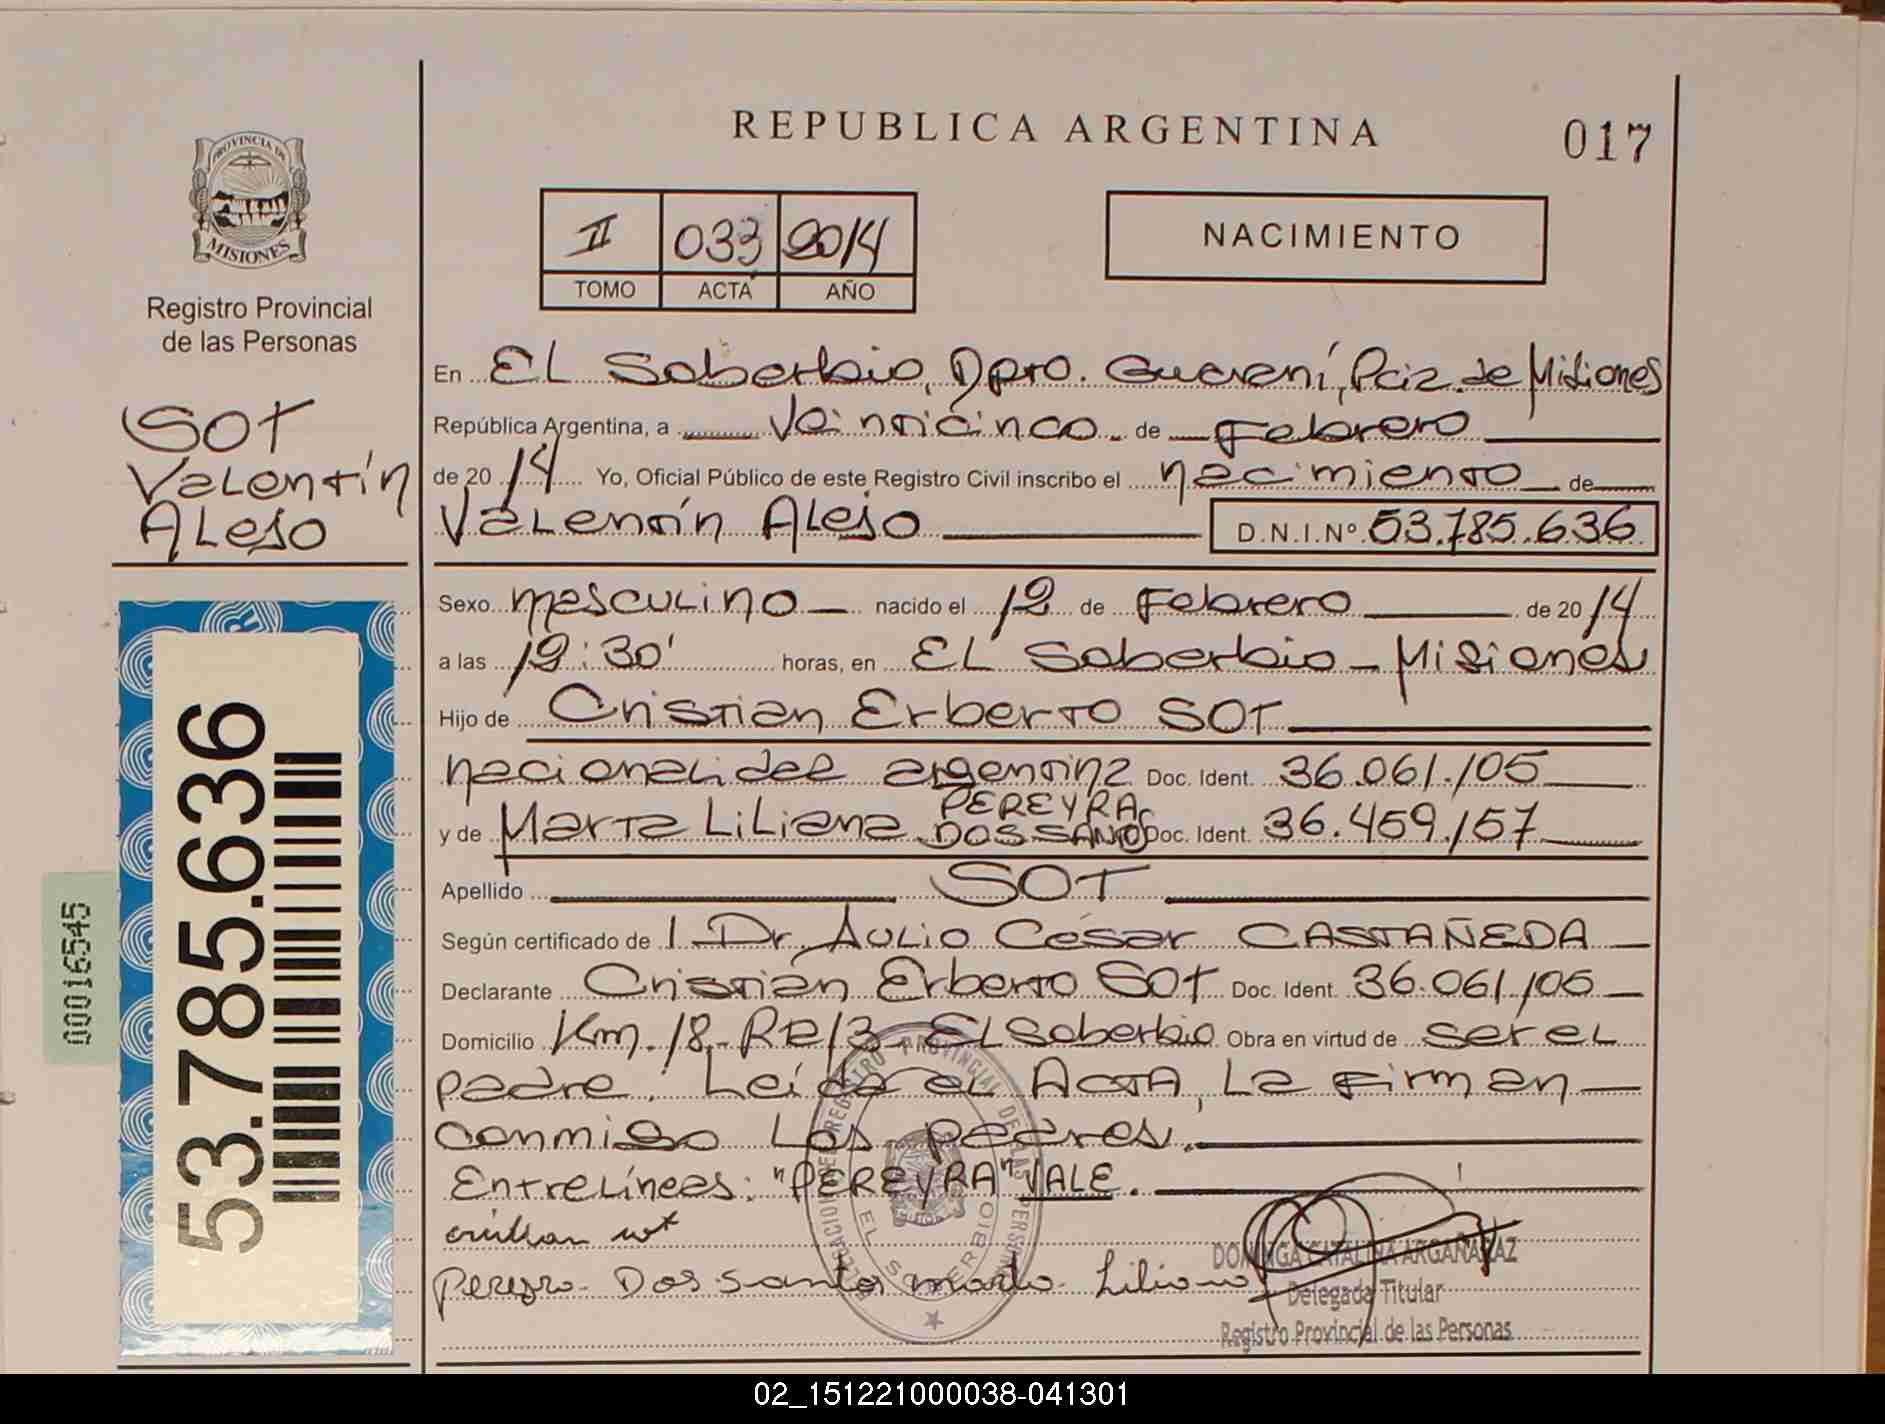 REPUBLICA ARGENTINA
017
PROVINCIA DE
MISIONES
Registro Provincial
de las Personas
II 033 2014
TOMO ACTA AÑO
NACIMIENTO
SOT
Valentín
Alejo
En El Soberbio, Dpto. Guaraní, Pcia. de Misiones
República Argentina, a Veinticinco de Febrero
de 2014 Yo, Oficial Público de este Registro Civil inscribo el nacimiento de
Valentín Alejo D.N.I.Nº 53.785.636
Sexo masculino nacido el 12 de Febrero de 2014
a las 19:30' horas, en El Soberbio - Misiones
Hijo de Cristian Erberto SOT
nacionalidad argentina Doc. Ident. 36.061.105
PEREYRA
y de Marta Liliana DOS SANTOS Doc. Ident. 36.459.157
Apellido SOT
Según certificado de 1 Dr. Aulio César CASTAÑEDA
Declarante Cristian Erberto SOT Doc. Ident. 36.061.105
Domicilio Km. 18 - RP 13 - El Soberbio Obra en virtud de ser el
padre. Leída el ACTA, la firman
conmigo los padres.
Entrelíneas: "PEREYRA" VALE.
Pereyra Dos Santos Marta Liliana
REGISTRO PROVINCIAL DE LAS PERSONAS
DELEGACION
EL SOBERBIO
DOMINGA CATALINA ARGAÑARAZ
Delegada Titular
Registro Provincial de las Personas
53.785.636
00016545
02_151221000038-041301